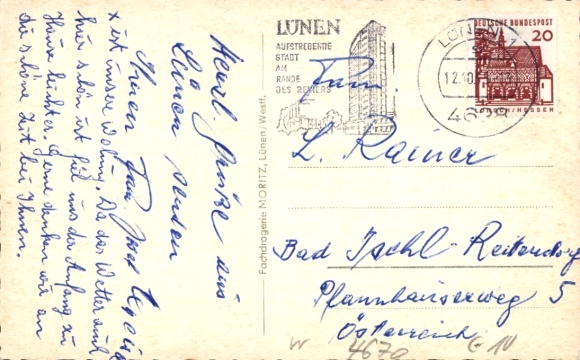 Herzl. Grüße aus
Lünen senden
Ihnen Fam. Josef
x ist unsere Wohnung. Da das Wetter auch
hier schön ist fiel uns der Anfang zu
Hause leichter. Gerne denken wir an
die schöne Zeit bei Ihnen.
Fachdrogerie MORITZ, Lünen/Westf.
LÜNEN
AUFSTREBENDE
STADT
AM
RANDE
DES REVIERS
LÜNEN
12.10.
DEUTSCHE BUNDESPOST
20
LORSCH/HESSEN
Fam.
L. Rainer
Bad Ischl-Reiterndorf
Pfannhauserweg 5
Österreich
4670